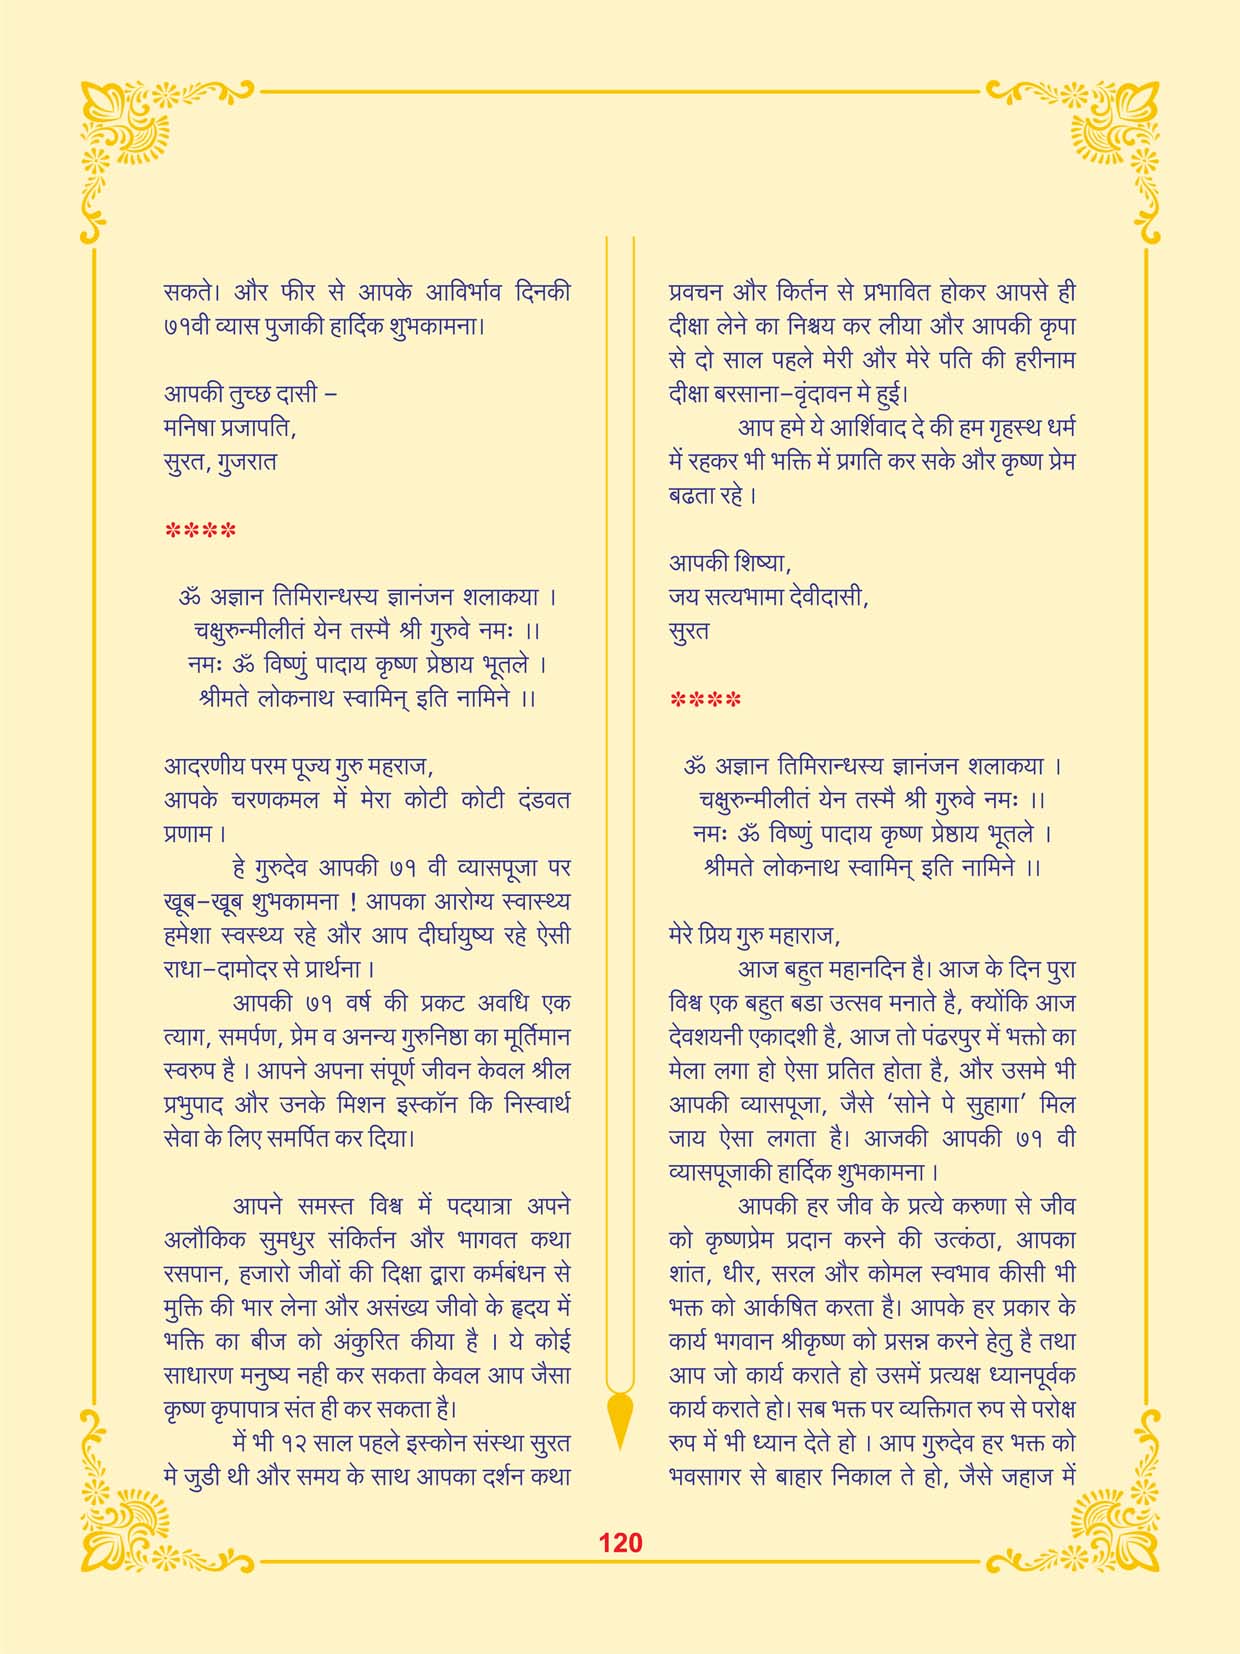 सकते। और फीर से आपके आविर्भाव दिनकी
७१वी व्यास पुजाकी हार्दिक शुभकामना।
आपकी तुच्छ दासी –
मनिषा प्रजापति,
सुरत, गुजरात
****
ॐ अज्ञान तिमिरान्धस्य ज्ञानंजन शलाकया ।
चक्षुरुन्मीलीतं येन तस्मै श्री गुरुवे नमः ।।
नमः ॐ विष्णुं पादाय कृष्ण प्रेष्ठाय भूतले ।
श्रीमते लोकनाथ स्वामिन् इति नामिने ।।
आदरणीय परम पूज्य गुरु महराज,
आपके चरणकमल में मेरा कोटी कोटी दंडवत
प्रणाम ।
हे गुरुदेव आपकी ७१ वी व्यासपूजा पर
खूब–खूब शुभकामना ! आपका आरोग्य स्वास्थ्य
हमेशा स्वस्थ्य रहे और आप दीर्घायुष्य रहे ऐसी
राधा–दामोदर से प्रार्थना ।
आपकी ७१ वर्ष की प्रकट अवधि एक
त्याग, समर्पण, प्रेम व अनन्य गुरुनिष्ठा का मूर्तिमान
स्वरुप है । आपने अपना संपूर्ण जीवन केवल श्रील
प्रभुपाद और उनके मिशन इस्कॉन कि निस्वार्थ
सेवा के लिए समर्पित कर दिया।
आपने समस्त विश्व में पदयात्रा अपने
अलौकिक सुमधुर संकिर्तन और भागवत कथा
रसपान, हजारो जीवों की दिक्षा द्वारा कर्मबंधन से
मुक्ति की भार लेना और असंख्य जीवो के हृदय में
भक्ति का बीज को अंकुरित कीया है । ये कोई
साधारण मनुष्य नही कर सकता केवल आप जैसा
कृष्ण कृपापात्र संत ही कर सकता है।
में भी १२ साल पहले इस्कोन संस्था सुरत
मे जुडी थी और समय के साथ आपका दर्शन कथा
प्रवचन और किर्तन से प्रभावित होकर आपसे ही
दीक्षा लेने का निश्चय कर लीया और आपकी कृपा
से दो साल पहले मेरी और मेरे पति की हरीनाम
दीक्षा बरसाना–वृंदावन मे हुई।
आप हमे ये आर्शिवाद दे की हम गृहस्थ धर्म
में रहकर भी भक्ति में प्रगति कर सके और कृष्ण प्रेम
बढता रहे ।
आपकी शिष्या,
जय सत्यभामा देवीदासी,
सुरत
****
ॐ अज्ञान तिमिरान्धस्य ज्ञानंजन शलाकया ।
चक्षुरुन्मीलीतं येन तस्मै श्री गुरुवे नमः ।।
नमः ॐ विष्णुं पादाय कृष्ण प्रेष्ठाय भूतले ।
श्रीमते लोकनाथ स्वामिन् इति नामिने ।।
मेरे प्रिय गुरु महाराज,
आज बहुत महानदिन है। आज के दिन पुरा
विश्व एक बहुत बडा उत्सव मनाते है, क्योंकि आज
देवशयनी एकादशी है, आज तो पंढरपुर में भक्तो का
मेला लगा हो ऐसा प्रतित होता है, और उसमे भी
आपकी व्यासपूजा, जैसे ‘सोने पे सुहागा’ मिल
जाय ऐसा लगता है। आजकी आपकी ७१ वी
व्यासपूजाकी हार्दिक शुभकामना ।
आपकी हर जीव के प्रत्ये करुणा से जीव
को कृष्णप्रेम प्रदान करने की उत्कंठा, आपका
शांत, धीर, सरल और कोमल स्वभाव कीसी भी
भक्त को आर्कषित करता है। आपके हर प्रकार के
कार्य भगवान श्रीकृष्ण को प्रसन्न करने हेतु है तथा
आप जो कार्य कराते हो उसमें प्रत्यक्ष ध्यानपूर्वक
कार्य कराते हो। सब भक्त पर व्यक्तिगत रुप से परोक्ष
रुप में भी ध्यान देते हो । आप गुरुदेव हर भक्त को
भवसागर से बाहार निकाल ते हो, जैसे जहाज में
120